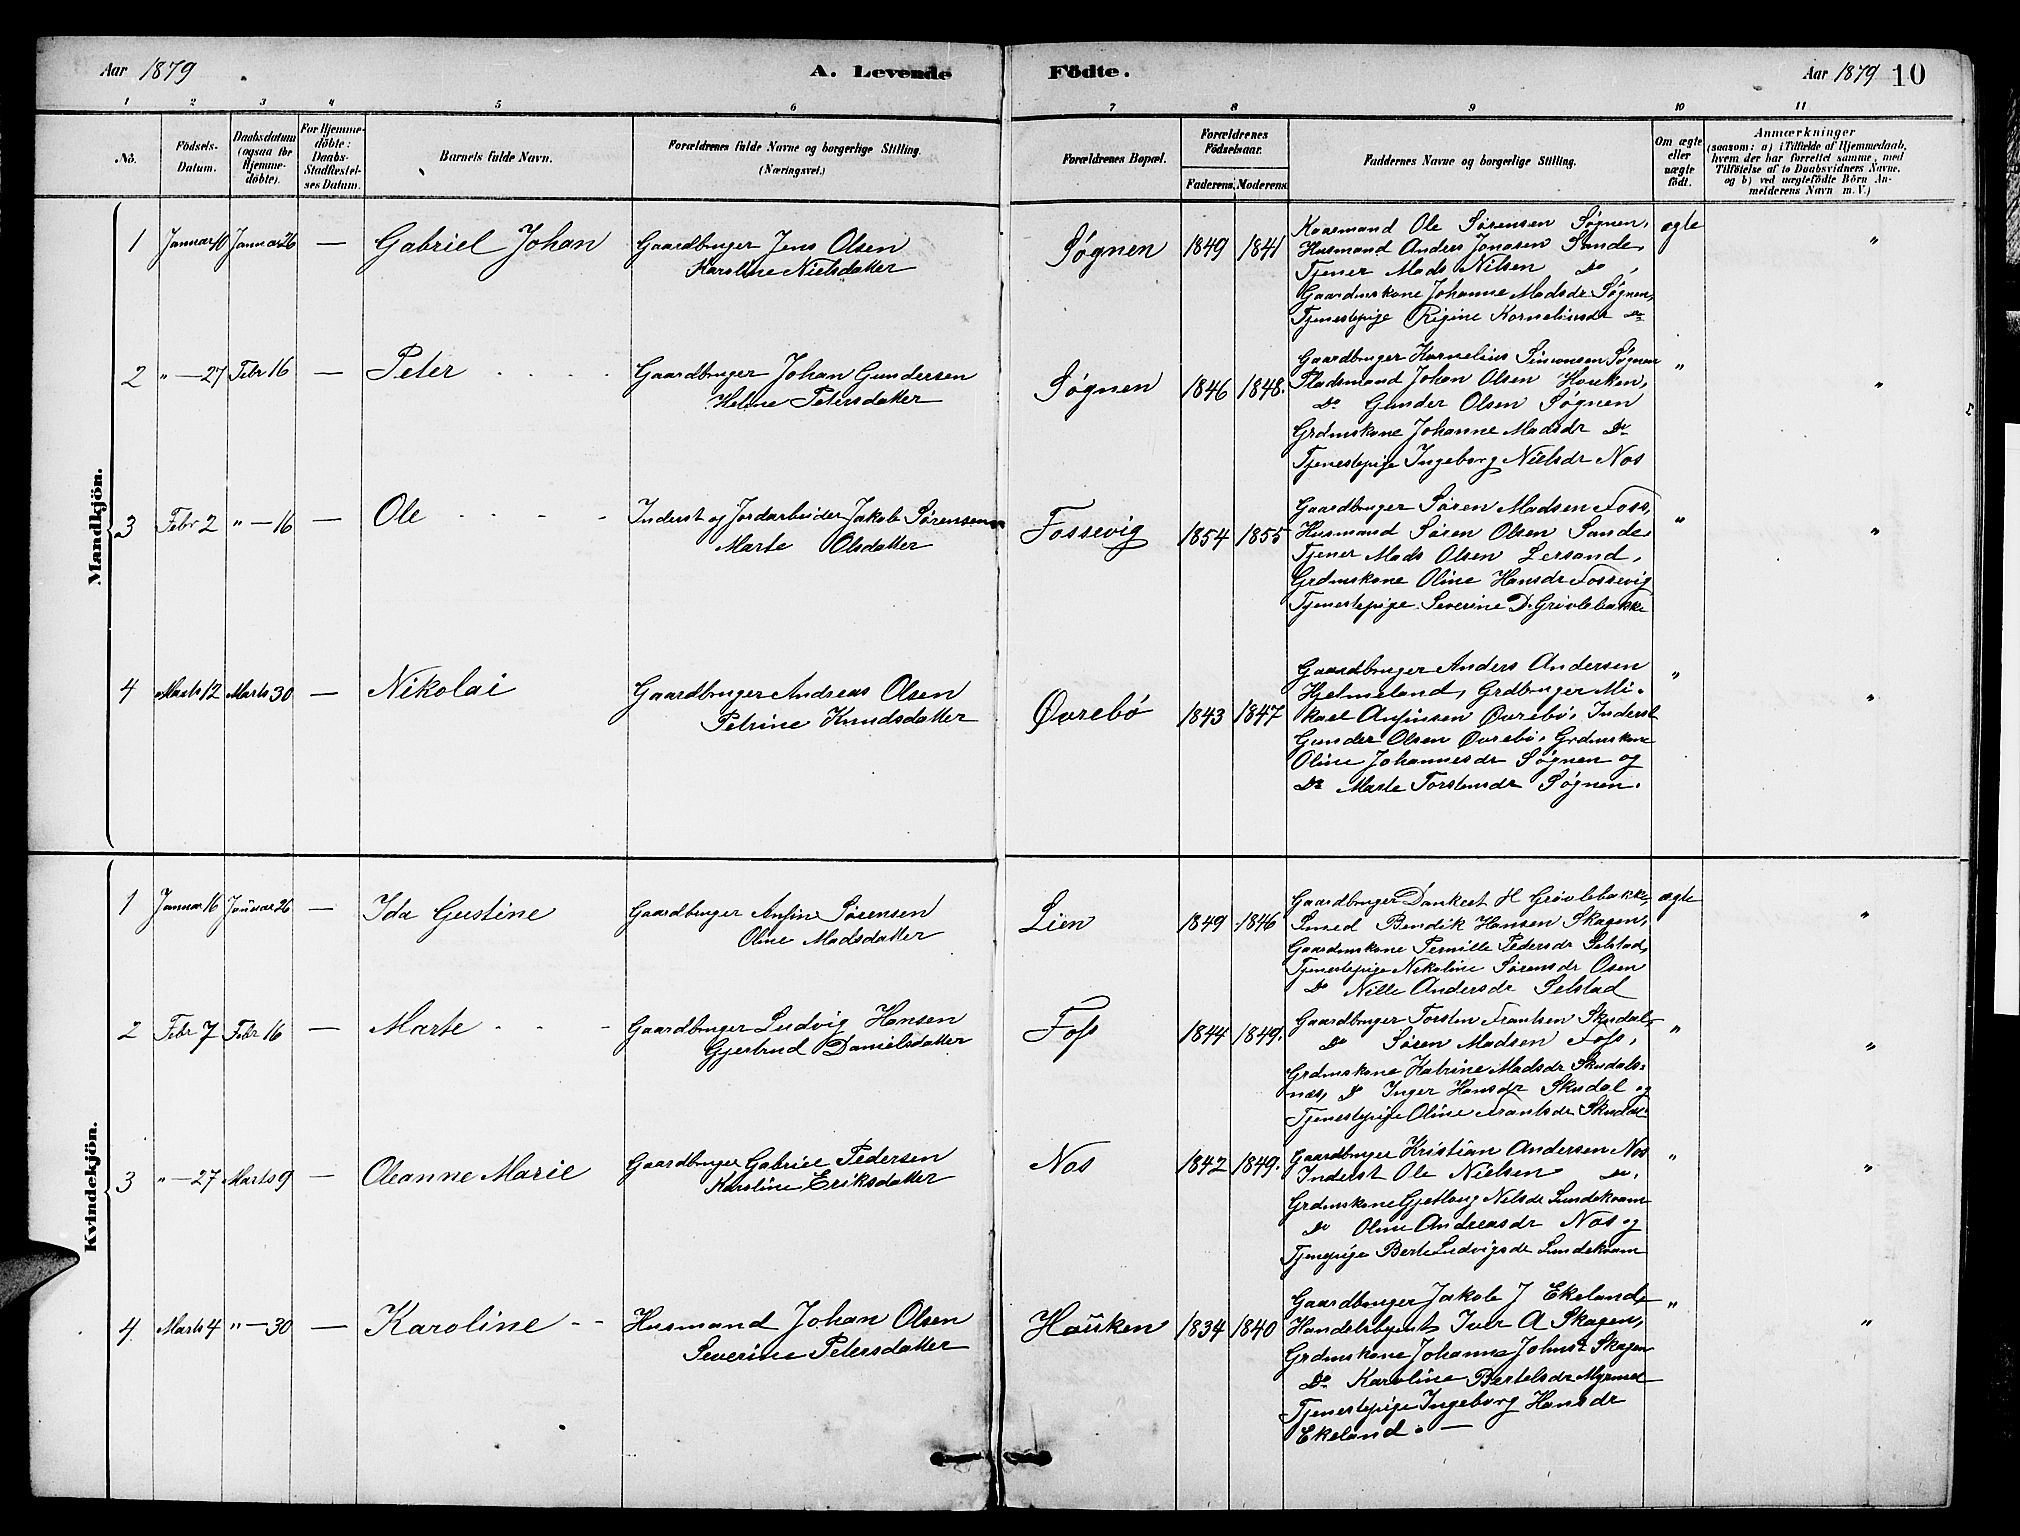 Aar 1879
A. Levende Födte.
Aar 1879 10
1 2 3 4 5 6 7 8 9 10 11
No.
Födsels-Datum.
Daabsdatum (ogsaa for Hjemmedöbte).
For Hjemmedöbte: Daabs-Stadfæstelses Datum.
Barnets fulde Navn.
Forældrenes fulde Navne og borgerlige Stilling. (Næringsvei.)
Forældrenes Bopæl.
Forældrenes Födselsaar.
Faderens. Moderens.
Faddernes Navne og borgerlige Stilling.
Om ægte eller uægte født.
Anmærkninger
(saasom: a) i Tilfælde af Hjemmedaab, hvem der har forrettet samme, med Tilföielse af to Daabsvidners Navne. og b) ved uægtefödte Börn Anmelderens Navn m. V.)
Mandkjön.
1 Januar 10 Januar 26 — Gabriel Johan
Gaardbruger Jens Olsen
Karoline Nielsdatter
Søgnen 1849 1841
Kaarmand Ole Sørensen Søgnen,
Husmand Anders Jonasen Sande,
Tjener Mads Nilsen Do,
Gaardmskone Johanne Madsdr Søgnen,
Tjenestepige Regine Kornelius dr Do
ægte "
2 " — 27 Febr 16 — Peter
Gaardbruger Johan Gundersen
Heline Petersdatter
Søgnen 1846 1848.
Gaardbruger Kornelius Simonsen Søgnen
Pladsmand Johan Olsen Housken,
Do Gunder Olsen Søgnen
Grdmskone Johanne Madsdr Do
Tjenestepige Ingeborg Nielsdr Nos
" "
3 Febr 2 " — 16 — Ole
Inderst og Jordarbeider Jakob Sørensen
Marte Olsdatter
Fossevig 1854 1855
Gaardbruger Søren Madsen Foss,
Husmand Søren Olsen Sande
Tjener Mads Olsen Lersand,
Grdmskone Oline Hansdr Fossevig
Tjenestepige Severine D. Grøvlebakke
" "
4 Marts 12 Marts 30 — Nikolai
Gaardbruger Andreas Olsen
Petrine Knudsdatter
Øvrebö 1843 1847
Gaardbruger Anders Andersen
Hjelmeland, Grdbruger Mi-
kael Anfinsen Øvrebö, Inderst
Gunder Olsen Øvrebö, Grdmskone
Oline Johannesdr Søgnen og
Do Marte Torstensdr Søgnen.
" "
Kvindekjön.
1 Januar 16 Januar 26 — Ida Gustine
Gaardbruger Anfin Sørensen
Oline Madsdatter
Lien 1849 1846
Gaardbruger Dankert H Grøvlebakke,
Smed Bendik Hansen Skagen,
Gaardmskone Pernille Pedersdr Selstad,
Tjenestepige Nikoline Sørensdr Osen
Do Nille Andersdr Selstad
ægte "
2 Febr 7 Febr 16 — Marte
Gaardbruger Ludvig Hansen
Gjertrud Danielsdatter
Foss 1844 1849.
Gaardbruger Torsten Frantsen Skudal,
Do Søren Madsen Foss,
Grdmskone Katrine Madsdr Skudals-
næs, Do Inger Hansdr Skudal og
Tjenestepige Oline Frantsdr Skudal
" "
3 " — 27 Marts 9 — Oleanne Marie
Gaardbruger Gabriel Pedersen
Karoline Eriksdatter
Nos 1842 1849.
Gaardbruger Kristian Andersen Nos
Inderst Ole Nielsen Do,
Grdmskone Gjetloug Nilsdr Sundekvam
Do Oline Andreasdr Nos og
Tjenepige Berte Ludvigsdr Sundekvam
" "
4 Marts 4 " — 30 — Karoline
Husmand Johan Olsen
Severine Petersdatter
Housken 1834 1840
Gaardbruger Jakob J Ekeland,
Handelsbjent Iver A Skagen,
Grdmskone Johanne Johns dr Skagen
Do Karoline Bertelsdr Myrmel
Tjenestepige Ingeborg Hansdr
Ekeland. —
" "